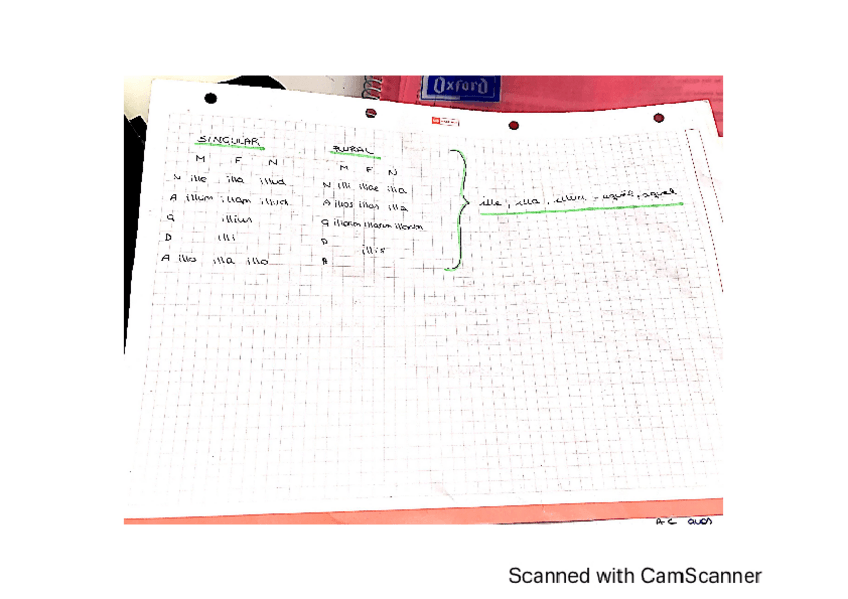 Oxford
SINGULAR
M F N
N ille illa illud
A illum illam illud
G illius
D illi
A illo illa illo
PLURAL
M F N
N illi illae illa
A illos illas illa
G illorum illarum illorum
D illis
A
ille, illa, illud
Scanned with CamScanner